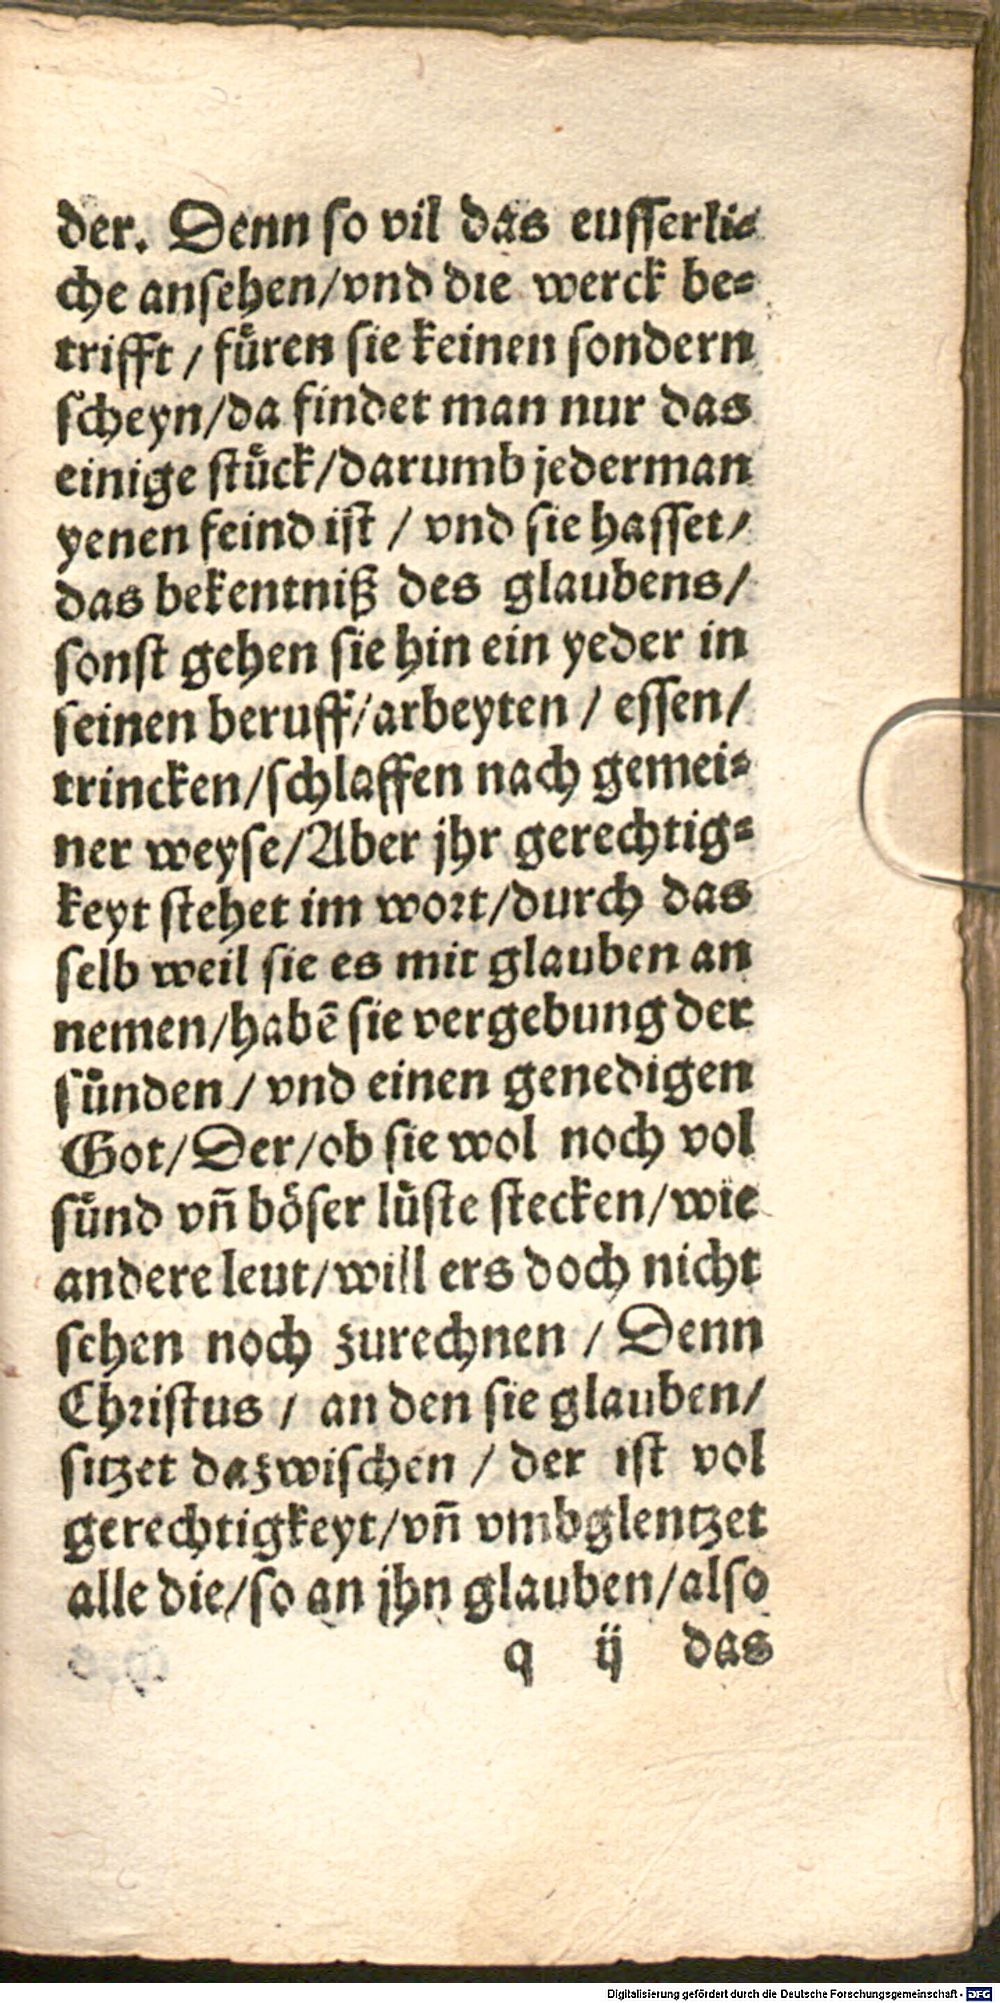 der. Denn ſo vil das euſſerli⸗
che anſehen/vnd die werck be⸗
trifft / fuͤren ſie keinen ſondern
ſcheyn/da findet man nur das
einige ſtuͤck/darumb jederman
yenen feind iſt / vnd ſie haſſet/
das bekentniß des glaubens/
ſonſt gehen ſie hin ein yeder in
ſeinen beruff/arbeyten / eſſen/
trincken/ſchlaffen nach gemei⸗
ner weyſe/Aber jhr gerechtig⸗
keyt ſtehet im wort/durch das
ſelb weil ſie es mit glauben an
nemen/habē ſie vergebung der
ſuͤnden / vnd einen genedigen
Got/Der/ob ſie wol noch vol
ſuͤnd vn̄ boͤſer luͤſte ſtecken/wie
andere leut/will ers doch nicht
ſehen noch zurechnen / Denn
Chriſtus / an den ſie glauben/
ſitzet dazwiſchen / der iſt vol
gerechtigkeyt/vn̄ vmbglentzet
alle die/ſo an jhn glauben/alſo
q ij das
Digitalisierung gefördert durch die Deutsche Forschungsgemeinschaft - DFG